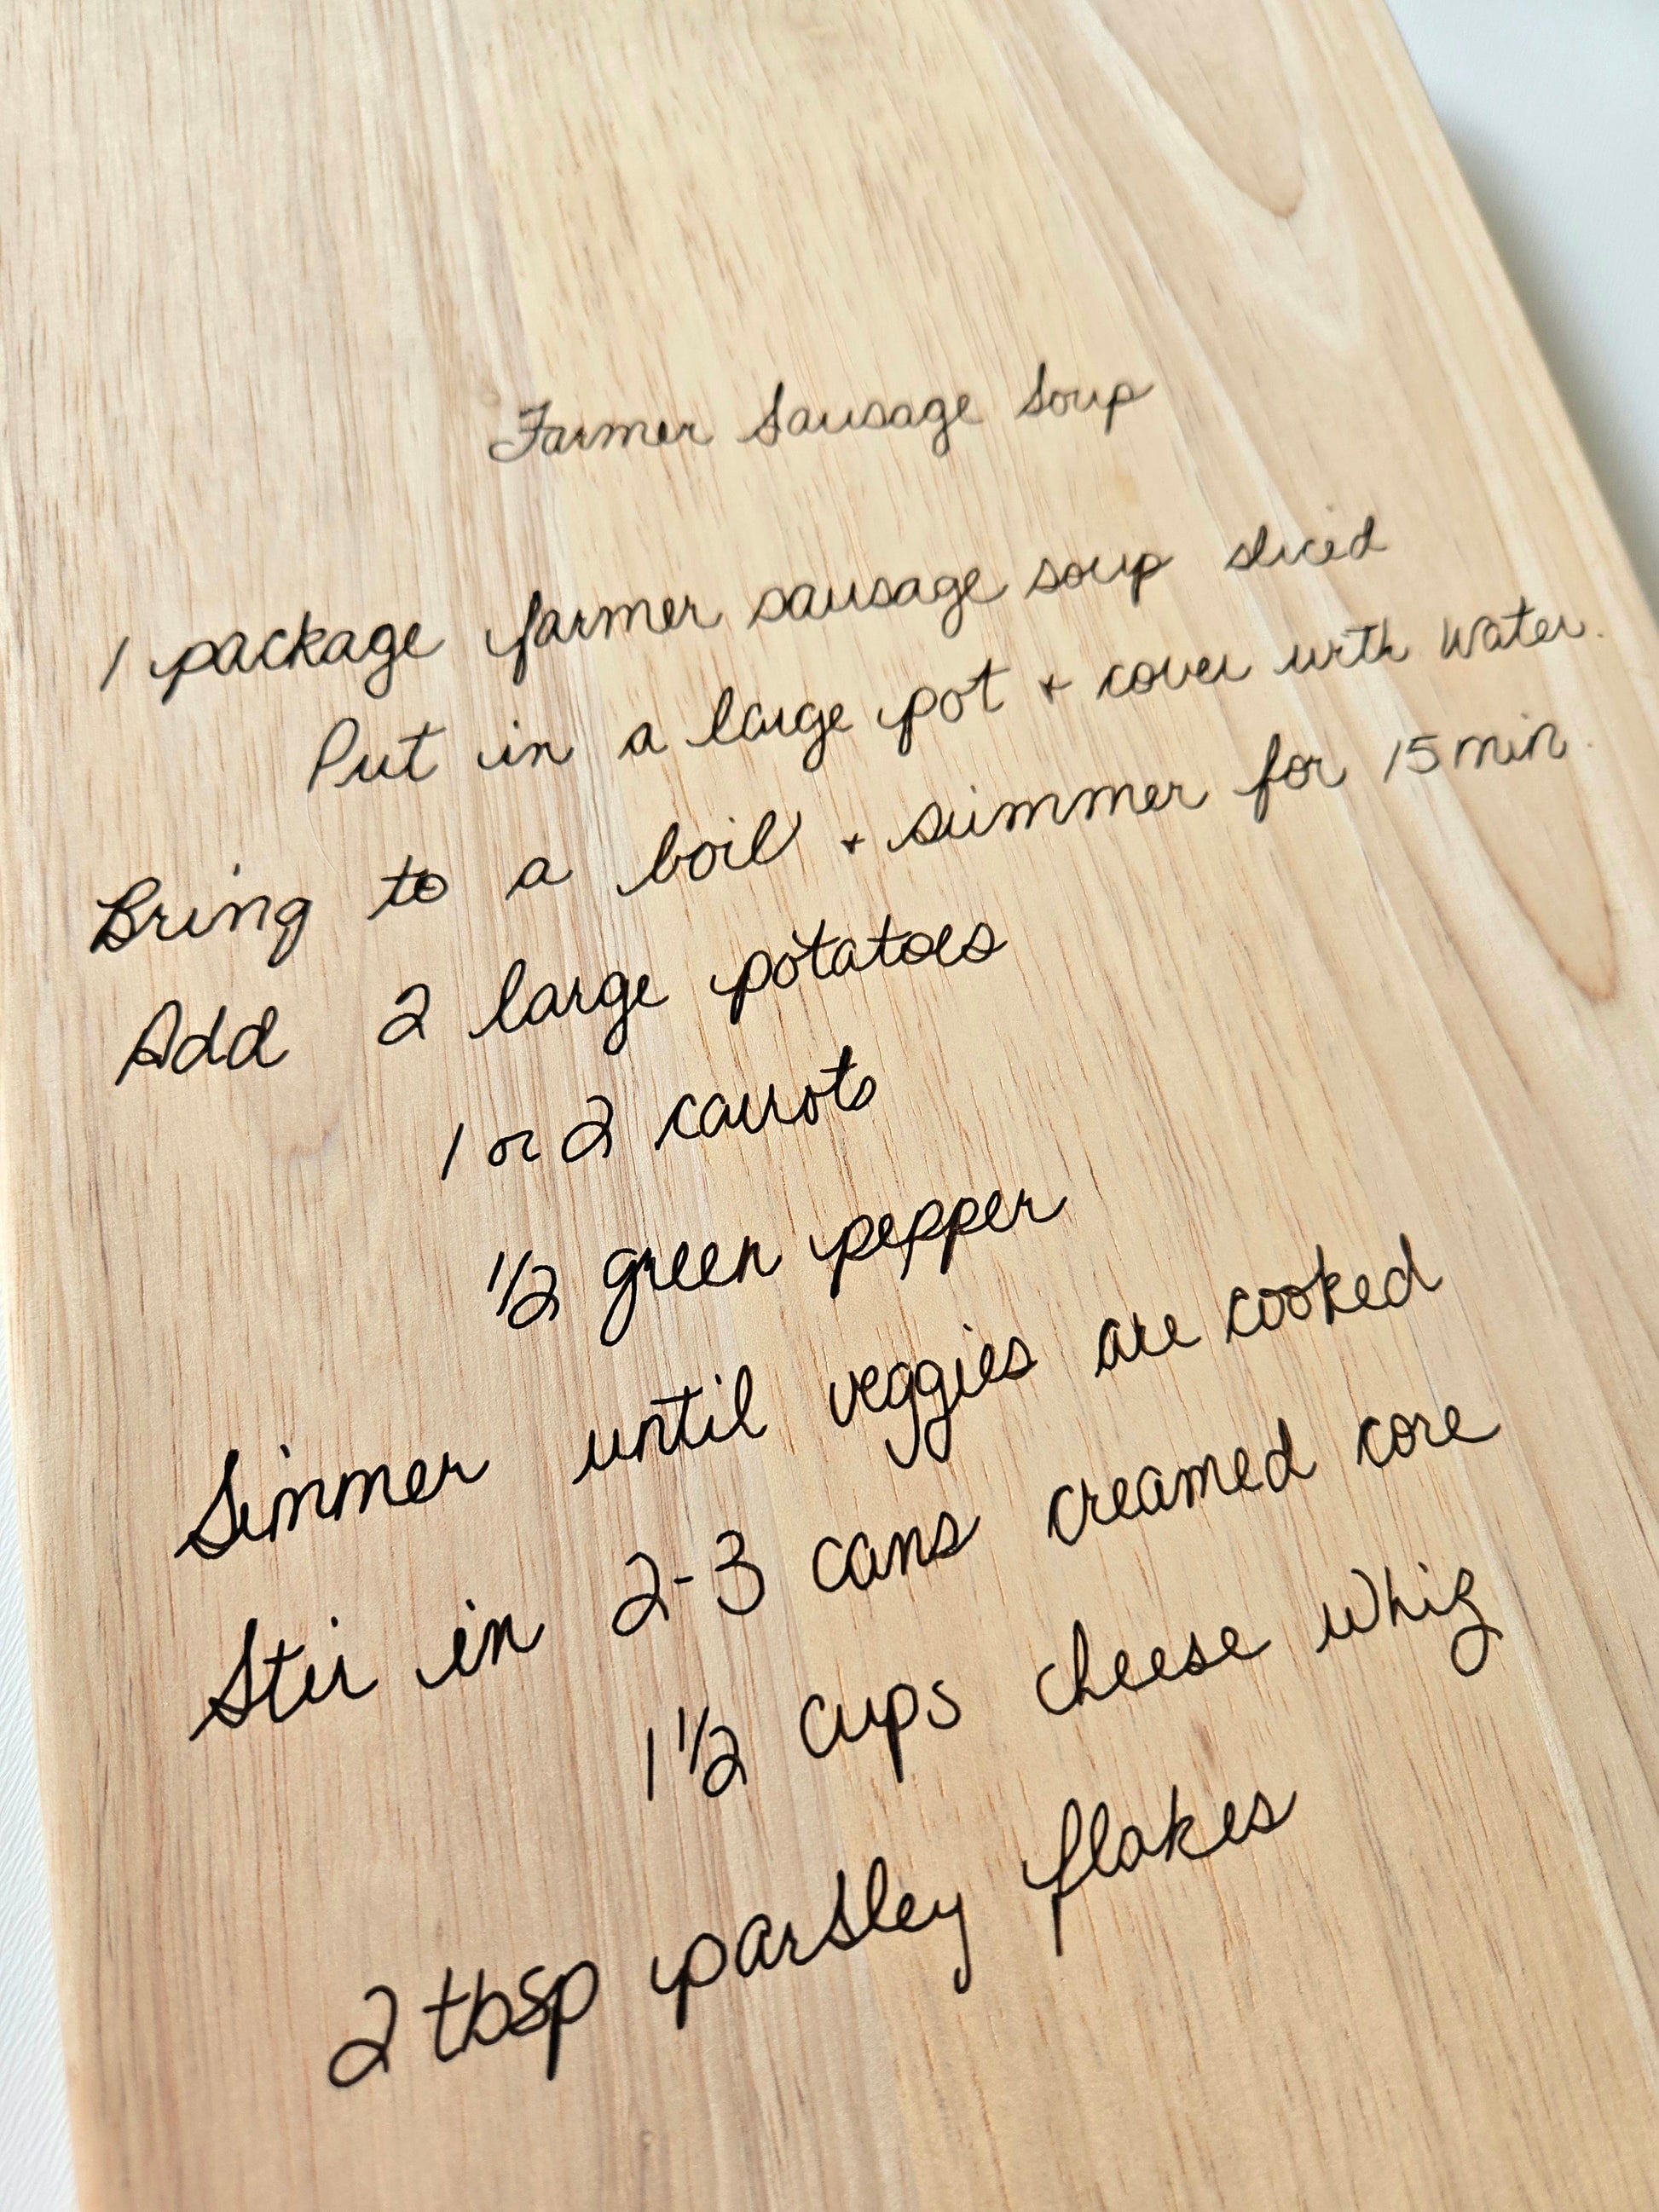 Farmer Sausage Soup
1 package farmer sausage soup sliced
Put in a large pot + cover with water.
Bring to a boil + simmer for 15 min.
Add 2 large potatoes
1 or 2 carrots
1/2 green pepper
Simmer until veggies are cooked
Stir in 2-3 cans creamed core
1 1/2 cups cheese whiz
2 tbsp parsley flakes